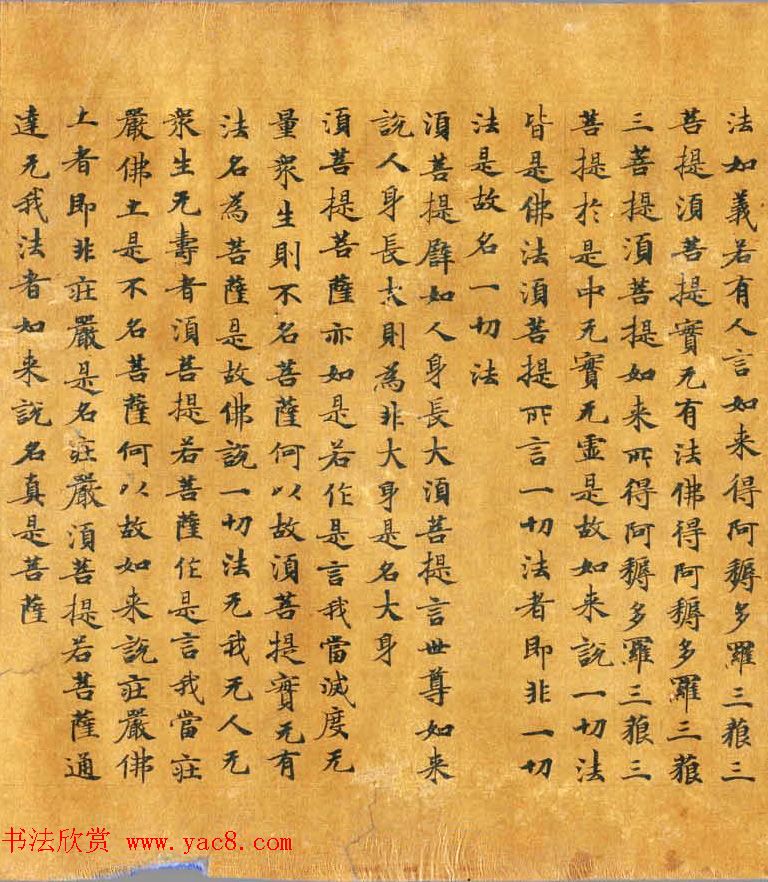 法如義若有人言如来得阿耨多羅三藐三
菩提湏菩提實无有法佛得阿耨多羅三藐
三菩提湏菩提如来所得阿耨多羅三藐三
菩提於是中无實无虛是故如来說一切法
皆是佛法湏菩提所言一切法者即非一切
法是故名一切法
湏菩提辟如人身長大湏菩提言世尊如来
說人身長大則為非大身是名大身
湏菩提菩薩亦如是若作是言我當滅度无
量衆生則不名菩薩何以故湏菩提實无有
法名為菩薩是故佛說一切法无我无人无
衆生无壽者湏菩提若菩薩作是言我當荘
嚴佛土是不名菩薩何以故如来說荘嚴佛
土者即非荘嚴是名荘嚴湏菩提若菩薩通
達无我法者如来說名真是菩薩
书法欣赏 www.yac8.com